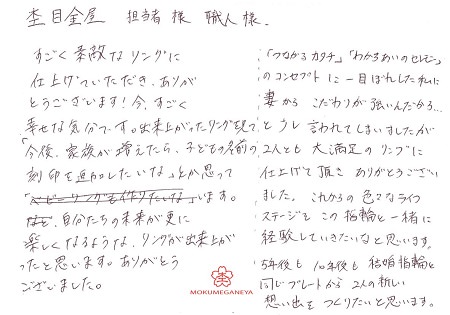 杢目金屋 担当者様 職人様.
すごく素敵なリングに
仕上げていただき、ありが
とうございます!今、すごく
幸せな気分です。出来上がったリングを見て
「今後、家族が増えたら、子どもの名前の
刻印を追加したいな」とか思って
「ベビーリングも作りたいな」います。
自分たちの未来が更に
楽しくなるような、リングが出来上が
ったと思います。ありがとう
ございました。
「つながるカタチ」「わかちあいのセレモニー」
のコンセプトに一目ぼれした私に
妻から こだわりが強いんだから…
と言われてしまいましたが
2人とも 大満足のリングに
仕上げて頂き ありがとうござい
ました。これからの色々なライフ
ステージを この指輪と一緒に
経験していきたいなと思います。
5年後も 10年後も 結婚指輪と
同じプレートから 2人の新しい
想い出を つくりたいと思います。
MOKUMEGANEYA